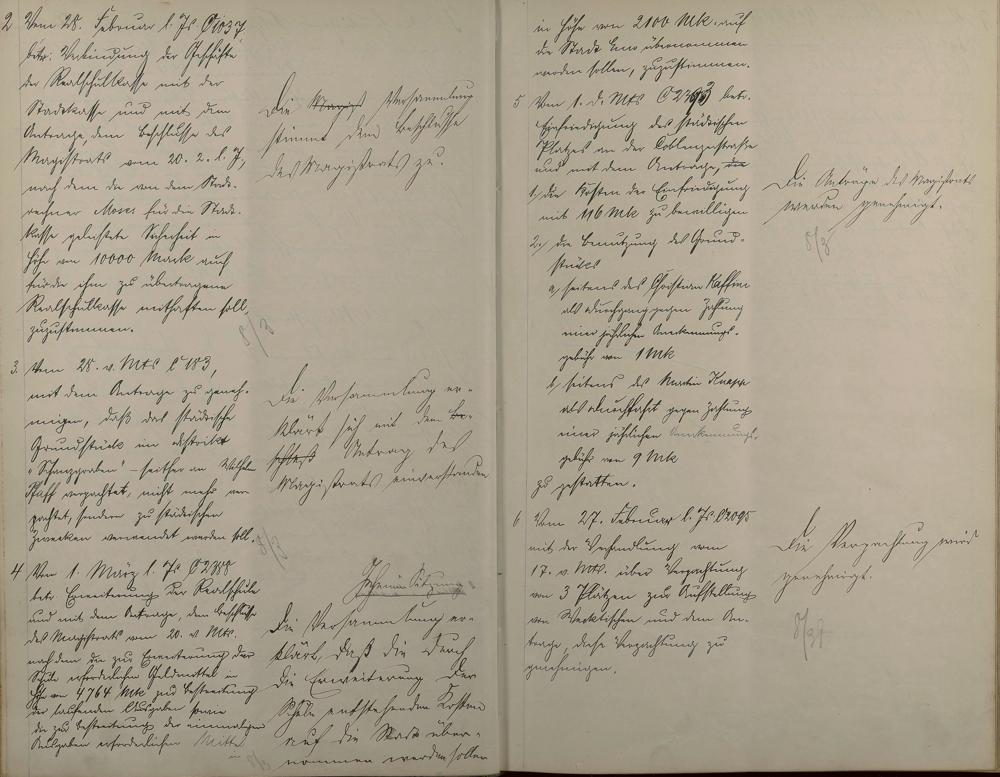 2 Vom 28. Februar l. Js C 1037
betr. Verbindung der Geschäfte
der Realschulkasse mit der
Stadtkasse und mit dem
Antrage, dem Beschlusse des
Magistrats vom 20. 2. l. J.,
nach dem die von dem Stadt-
rechner Moses für die Stadt-
kasse geleistete Sicherheit in
Höhe von 10000 Mark auch
für die ihm zu übertragene
Realschulkasse mithaften soll,
zuzustimmen.
Die Magist Versammlung
stimmt dem Beschlusse
des Magistrats zu.
8/3
3. Vom 28. v. Mts C 183,
mit dem Antrage zu geneh-
migen, daß das städtische
Grundstück im Distrikt
"Schanzgraben" – seither an Wilhelm
Pfaff verpachtet, nicht mehr ver-
pachtet, sondern zu städtischen
Zwecken verwendet werden soll.
Die Versammlung er-
klärt sich mit dem Be-
schluß Antrag des
Magistrats einverstanden
4 Vom 1. März l. Js C 2388
betr. Erweiterung der Realschule
und mit dem Antrage, dem Beschlusse
des Magistrats vom 20. v. Mts.
nach dem die zur Erweiterung der
Schule erforderlichen Geldmittel in
Höhe von 4764 Mk zur Bestreitung
der laufenden Ausgaben sowie
die zur Bestreitung der einmaligen
Ausgaben erforderlichen Mittel
Geheime Sitzung:
Die Versammlung er-
klärt, daß die durch
die Erweiterung der
Schule entstehenden Kosten
auf die Stadt über-
nommen werden sollen
in Höhe von 2100 Mk. auf
die Stadt Ems übernommen
werden sollen, zuzustimmen.
5 Vom 1. d. Mts C betr.
Einfriedigung des städtischen
Platzes an der Coblenzerstraße
und mit dem Antrage, die
1, die Kosten der Einfriedigung
mit 116 Mk zu bewilligen
2, die Benutzung des Grund-
stückes
a, seitens des Christian
als Durchgang gegen Zahlung
einer jährlichen Anerkennungs-
gebühr von 1 Mk
b, seitens des Martin Knapp
als Durchfahrt gegen Zahlung
einer jährlichen Anerkennungs-
gebühr von 9 Mk
zu gestatten.
Die Anträge des Magistrats
werden genehmigt.
8/3
6 Vom 27. Februar l. Js. C 2095
mit der Verhandlung vom
17. v. Mts. über Verpachtung
von 3 Plätzen zur Aufstellung
von und dem An-
trage, diese Verpachtung zu
genehmigen.
Die Verpachtung wird
genehmigt.